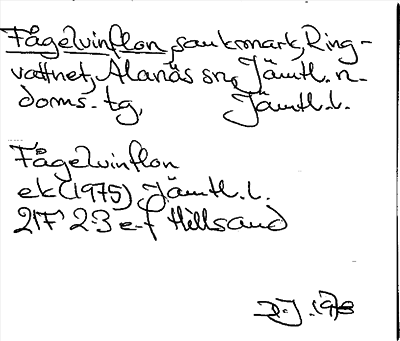 Fågelvinflon, sankmark, Ring-
vattnet, Alanäs sn, Jämtl. n.
doms. tg, Jämtl. l.
Fågelvinflon
ek (1975) Jämtl. l.
21F 2-3 e-f Hillsand
1978